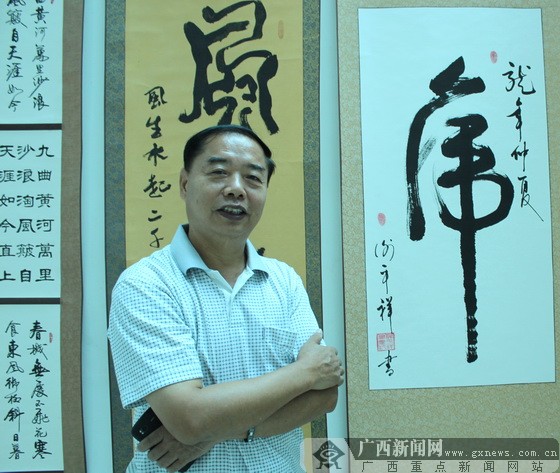 曲黄河萬里沙浪
風簸自天涯如今
九曲黄河萬里
沙浪淘風簸自
天涯如今直上
春城無處不飛花寒
食東風御柳斜日暮
風
風生水起二千
虎
龍年仲夏
祥
書
广西新闻网
www.gxnews.com.cn
广西重点新闻网站